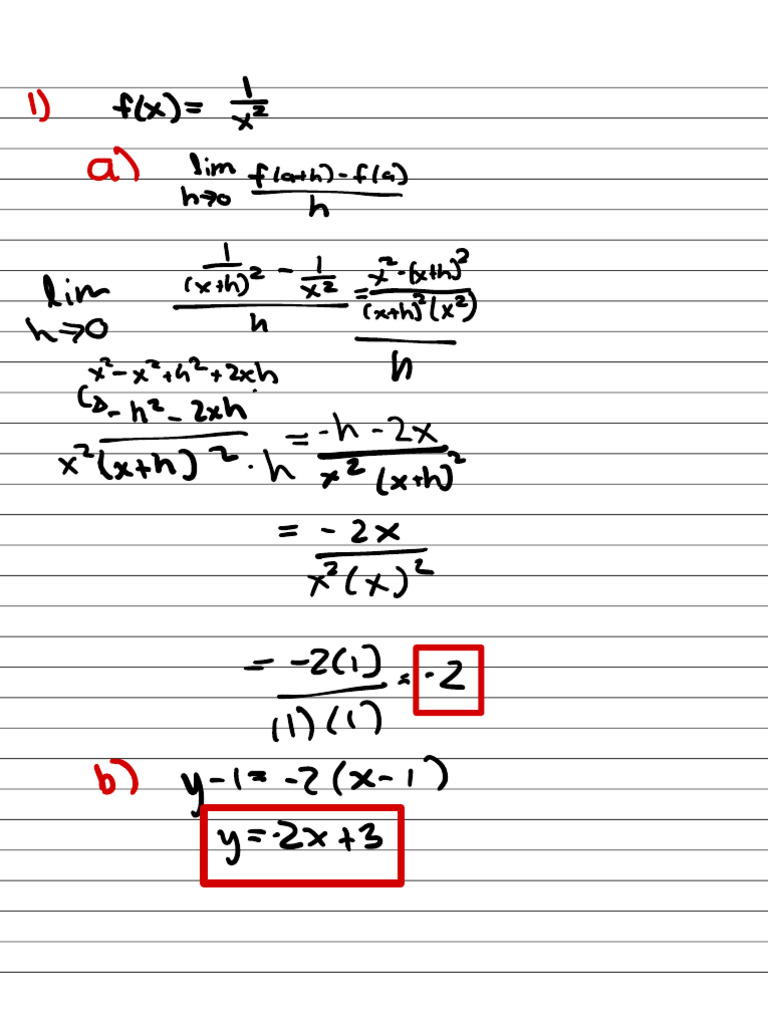 1) f(x) = 1/x²
a) lim h→0 (f(a+h) - f(a))/h
lim h→0 (1/(x+h)² - 1/x²)/h = ((x² - (x+h)²)/((x+h)²(x²)))/h
x² - x² + h² + 2xh
↳ (-h² - 2xh)/(x²(x+h)² · h) = (-h - 2x)/(x²(x+h)²)
= -2x/(x²(x)²)
= -2(1)/((1)(1)) = -2
b) y - 1 = -2(x - 1)
y = -2x + 3